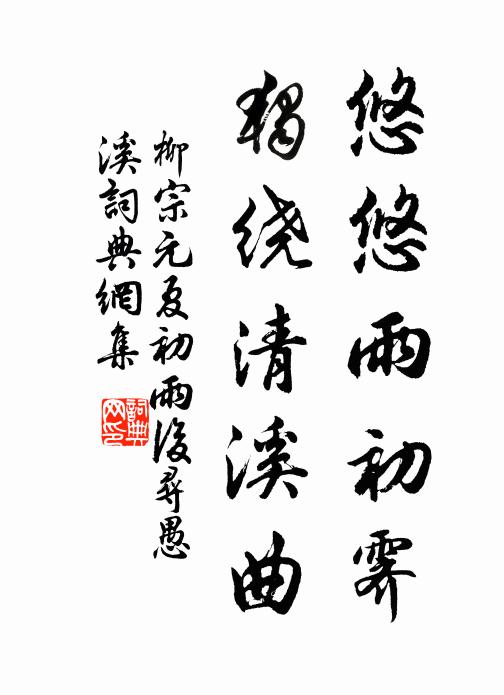 悠悠雨初霽
獨绕清溪曲
柳宗元夏初雨後尋愚
溪詞典網集
詞典
网印